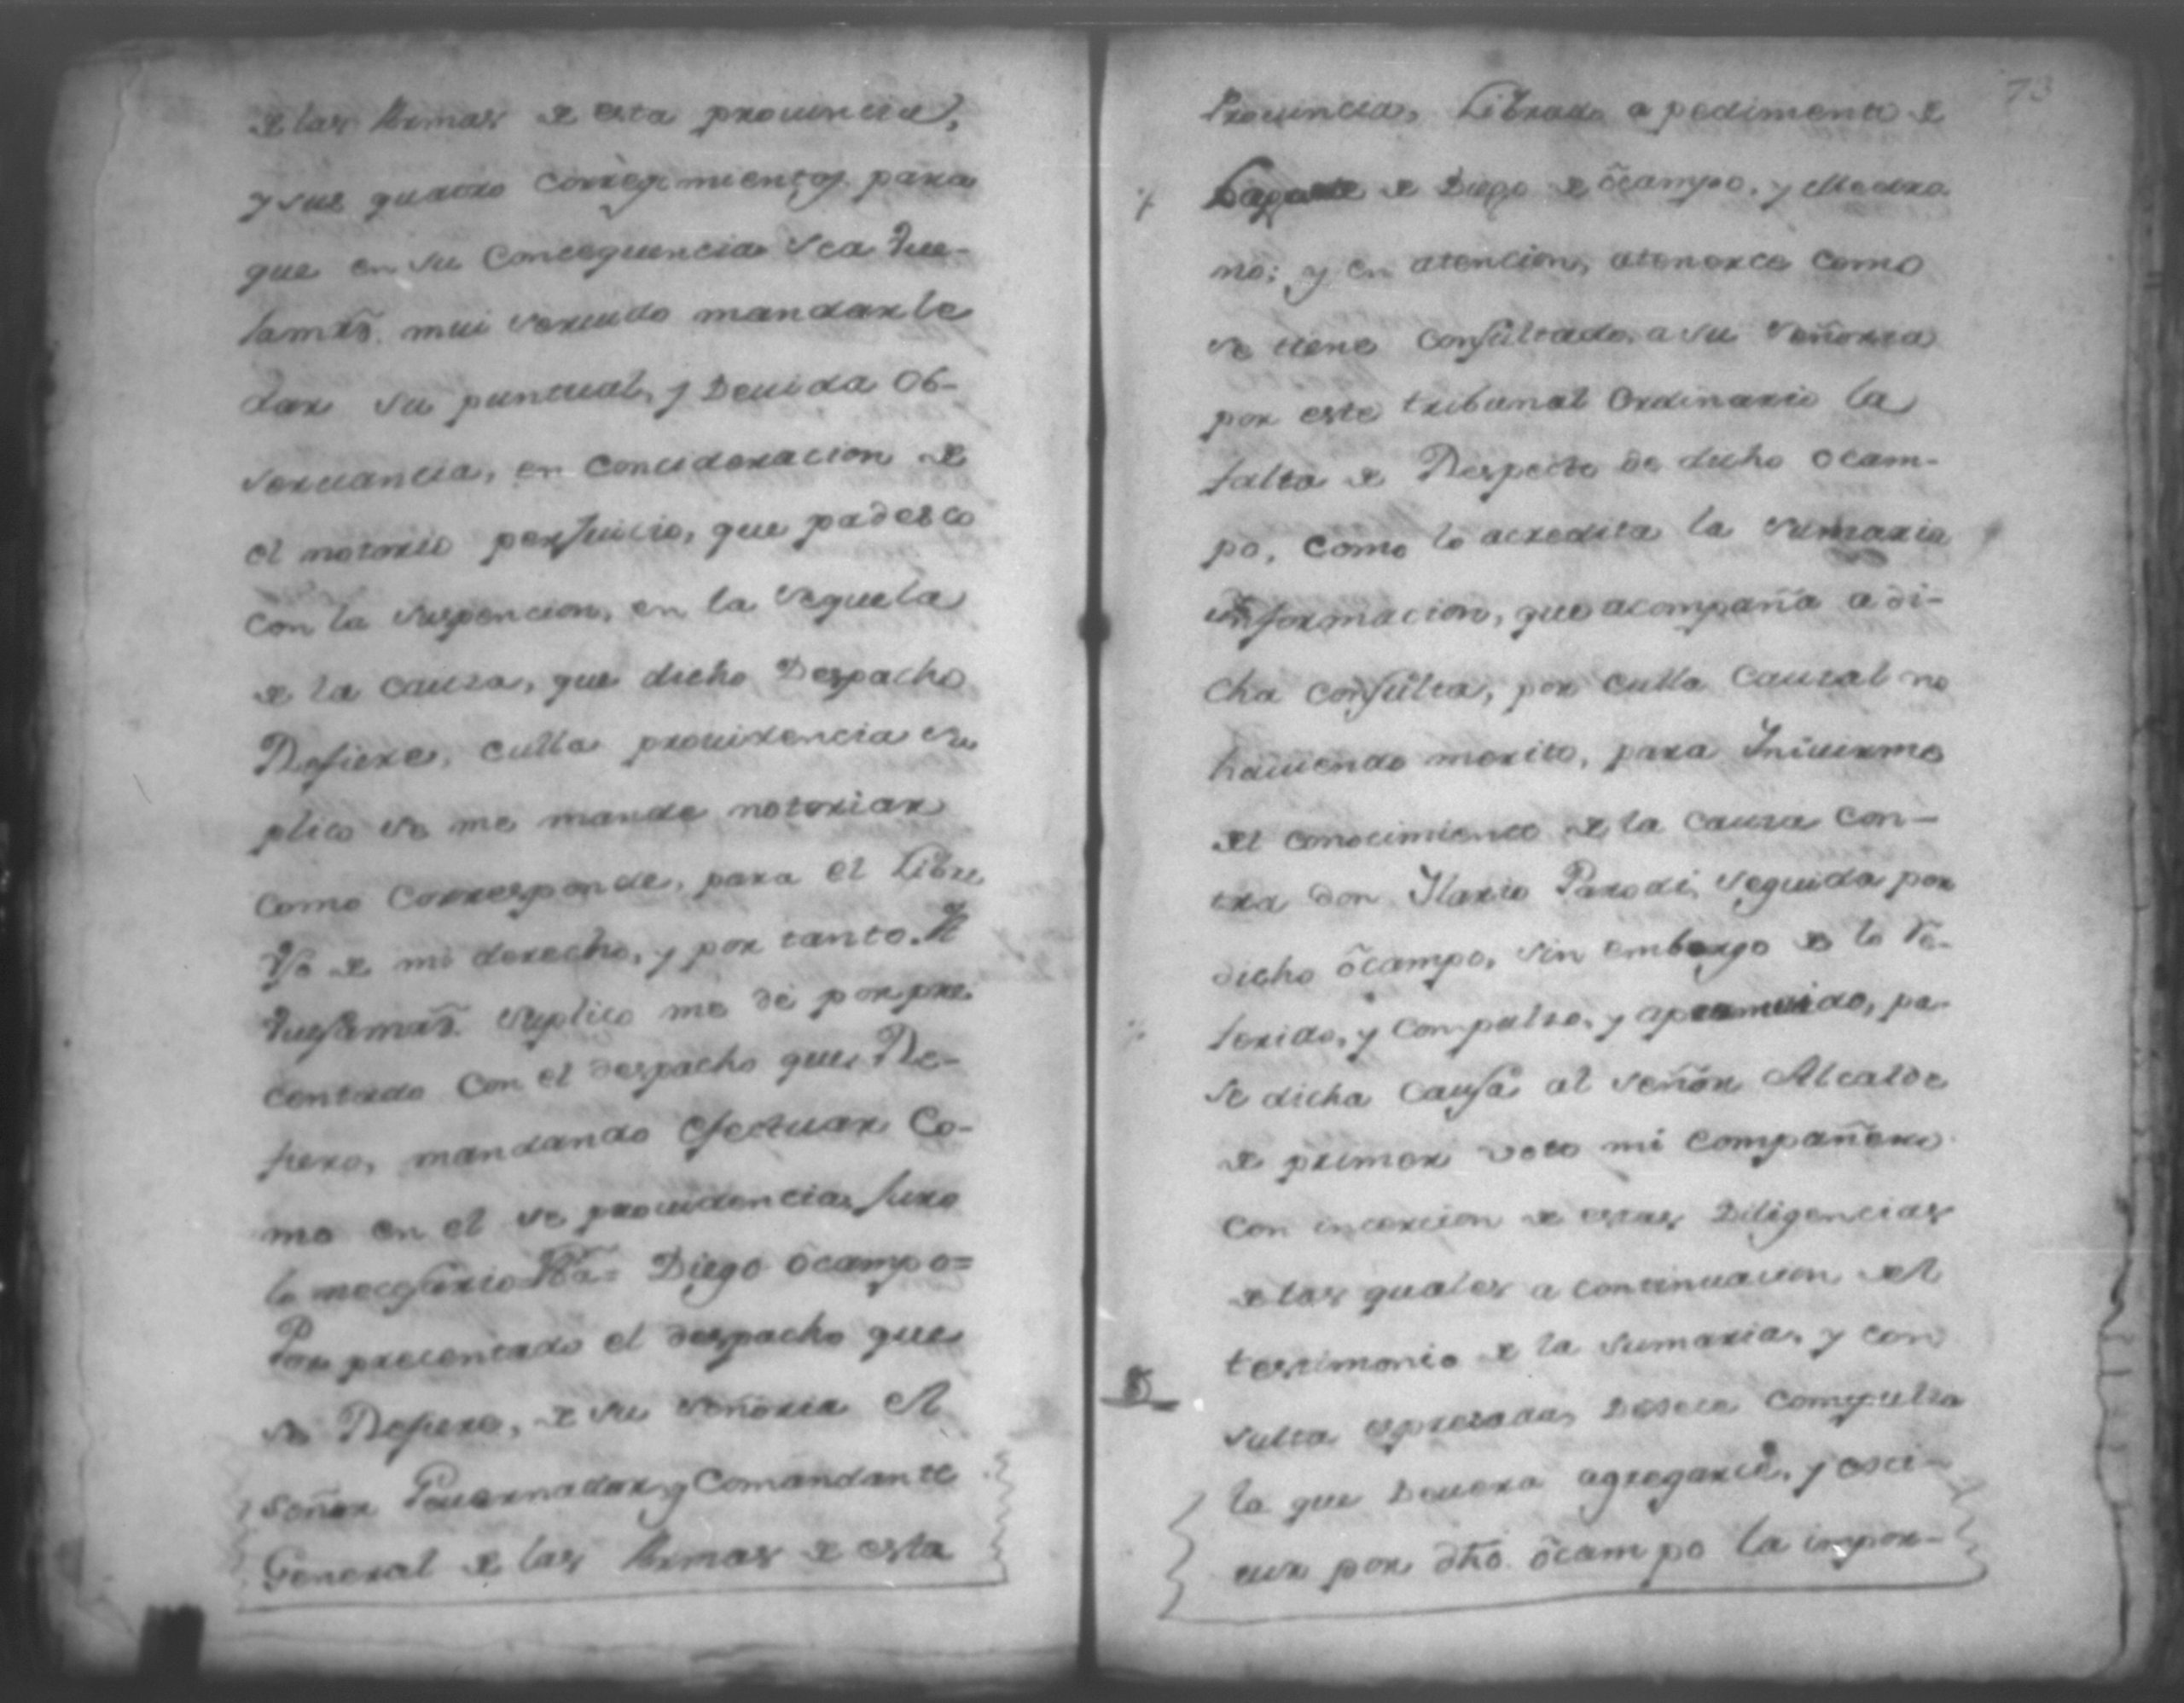 de las Armas de esta prouincia,
y sus quatro corregimientos para
que en su consequencia sea Jus-
tam.te mui seruido mandarle
dar su puntual, y Deuida Ob-
seruancia, en concideracion de
el notorio perjuicio, que padesco
con la suspencion, en la sequela
de la causa, que dicho Despacho
Refiere, culla prouidencia su
plico se me mande notoriar
como corresponde, para el Libre
Vso de mi derecho, y por tanto. A
suplico me dé por pre
centado con el despacho que Re-
fiero, mandando efectuar Co-
mo en el se prouidencia, juro
lo necesario Diego Ocampo =
Por precentado el despacho que
se Refiere, de su señoria el
señor Gouernador, y Comandante
General de las Armas de esta
73
Prouincia, Librado a pedimento de
Laparte de Diego de Ocampo, y Medra
no: y en atencion, atenerce como
se tiene consultado, a su señoria
por este tribunal Ordinario la
falta de Respecto de dicho Ocam-
po, como lo acredita la sumaria
informacion, que acompaña a di-
cha consulta, por culla causal no
hauiendo merito, para Iniuirme
del conocimiento de la causa con-
tra don Ilario Parodi, seguida por
dicho Ocampo, sin embargo de lo Re-
ferido, y compulso, y apremiado, pa-
se dicha causa al señor Alcalde
de primer voto mi compañero
con incercion de estas Diligencias
de las quales a continuacion del
testimonio de la sumaria, y con
sulta espresada, Desele compulsa
la que Deuera agregarce, y esci-
uir por dho. Ocampo la impor-